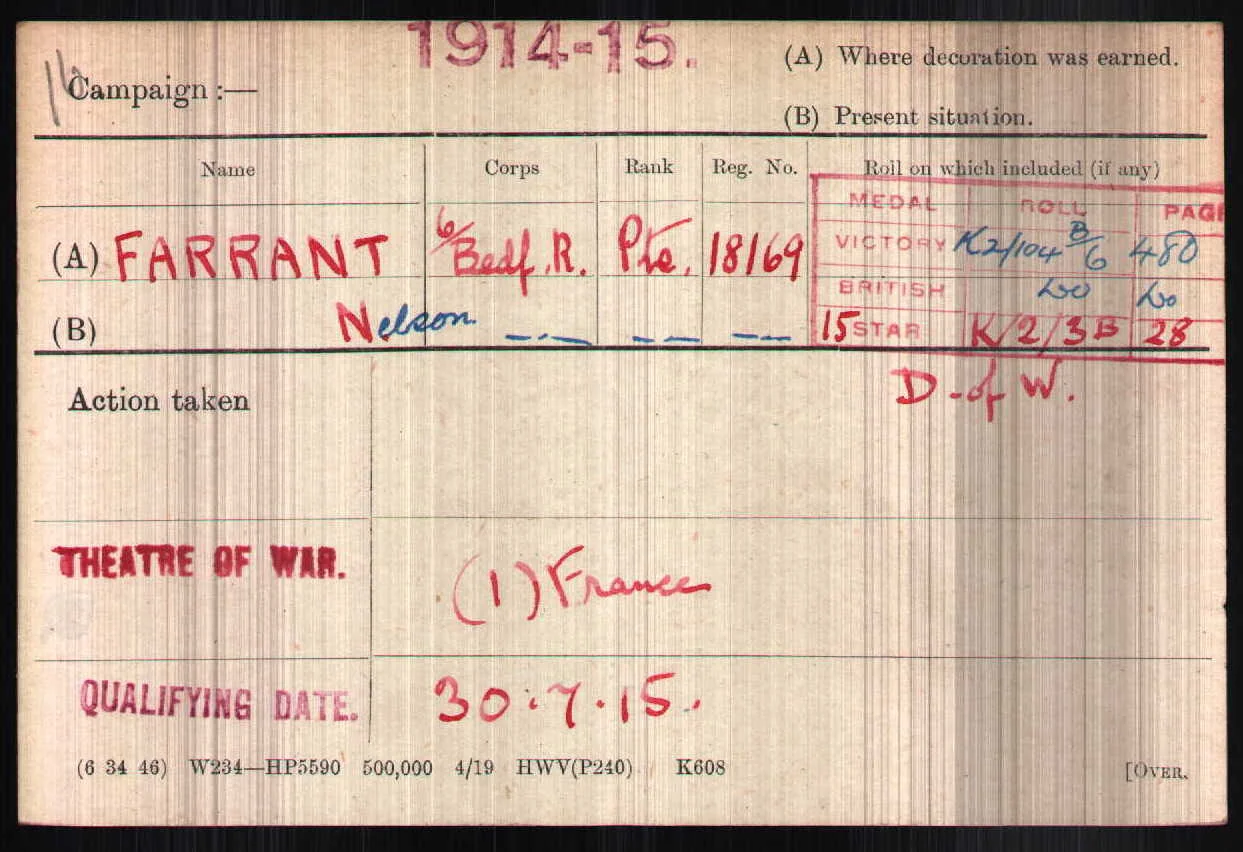 1914-15.
(A) Where decoration was earned.
Campaign :—
(B) Present situation.
Name Corps Rank Reg. No. Roll on which included (if any)
MEDAL ROLL PAGE
(A) FARRANT 6/Bedf. R. Pte. 18169 VICTORY K2/104 B/6 480
BRITISH Do Do
(B) Nelson —·— — — — — 15 STAR K/2/3B 28
Action taken D. of W.
THEATRE OF WAR. (1) France
QUALIFYING DATE. 30.7.15.
(6 34 46) W234—HP5590 500,000 4/19 HWV(P240) K608 [OVER.